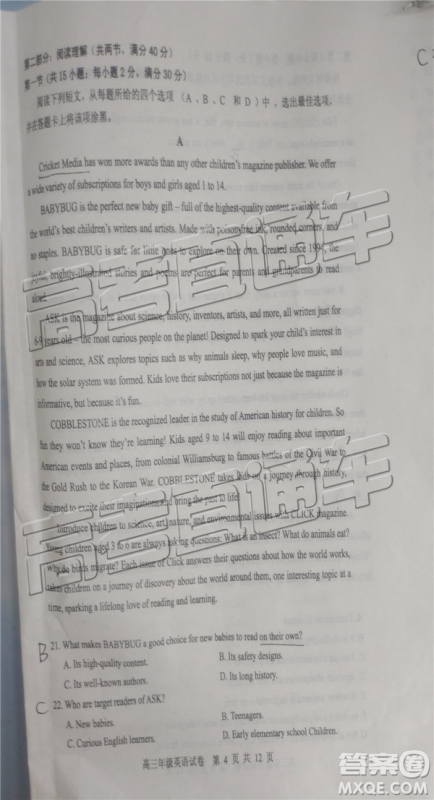 第二部分：阅读理解（共两节，满分40分）
第一节（共15小题；每小题2分，满分30分）
阅读下列短文，从每题所给的四个选项（A、B、C 和 D）中，选出最佳选项，
并在答题卡上将该项涂黑。
A
Cricket Media has won more awards than any other children's magazine publisher. We offer
a wide variety of subscriptions for boys and girls aged 1 to 14.
BABYBUG is the perfect new baby gift – full of the highest-quality content available from
the world's best children's writers and artists. Made with poison-free ink, rounded corners, and
no staples. BABYBUG is safe for little ones to explore on their own. Created since 1994, the
joyful, brightly-illustrated stories and poems are perfect for parents and grandparents to read
aloud.
ASK is the magazine about science, history, inventors, artists, and more, all written just for
6-9 years old – the most curious people on the planet! Designed to spark your child's interest in
arts and science, ASK explores topics such as why animals sleep, why people love music, and
how the solar system was formed. Kids love their subscriptions not just because the magazine is
informative, but because it's fun.
COBBLESTONE is the recognized leader in the study of American history for children. So
fun they won't know they're learning! Kids aged 9 to 14 will enjoy reading about important
American events and places, from colonial Williamsburg to famous battles of the Civil War to
the Gold Rush to the Korean War. COBBLESTONE takes kids on a journey through history,
designed to excite their imaginations and bring the past to life.
Introduce children to science, art, nature, and environmental issues with CLICK magazine.
Young children aged 3 to 6 are always asking questions: What is an insect? What do animals eat?
Why do birds migrate? Each issue of Click answers their questions about how the world works,
takes children on a journey of discovery about the world around them, one interesting topic at a
time, sparking a lifelong love of reading and learning.
B 21. What makes BABYBUG a good choice for new babies to read on their own?
A. Its high-quality content. B. Its safety designs.
C. Its well-known authors. D. Its long history.
C 22. Who are target readers of ASK?
A. New babies. B. Teenagers.
C. Curious English learners. D. Early elementary school Children.
高三年级英语试卷 第 4 页 共 12 页
C
高考直通车
高考直通车
答案圈
MXQE.COM